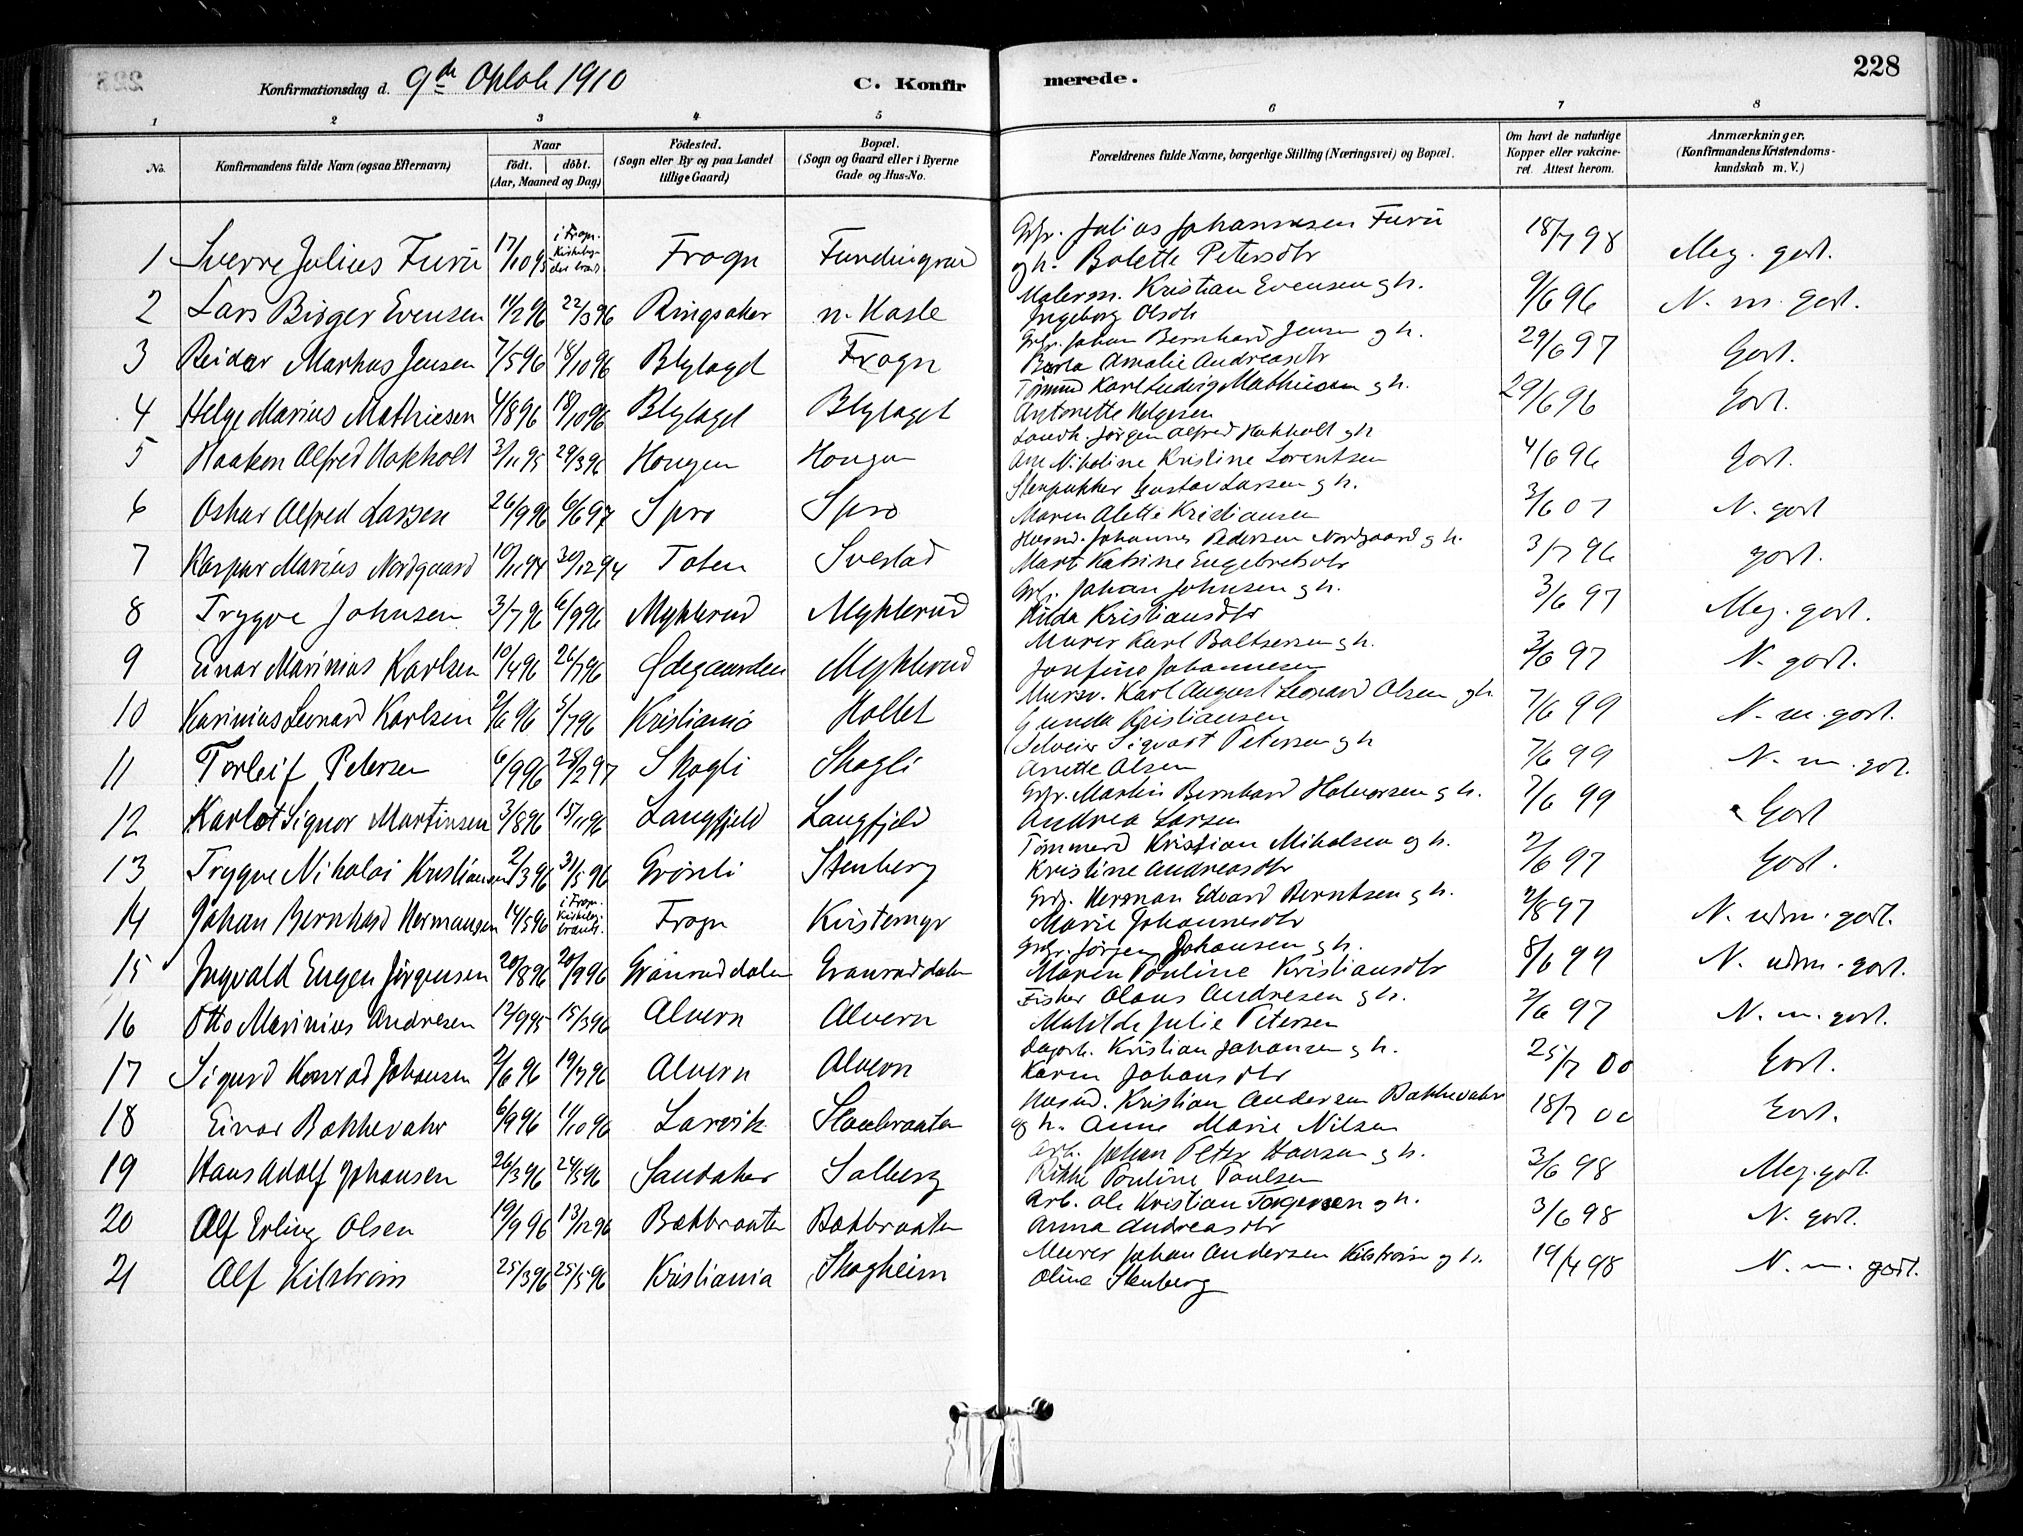 228
Konfirmationsdag d. 9de Oktob 1910
C. Konfirmerede.
1 2 3 4 5 6 7 8
No.
Konfirmandens fulde Navn (ogsaa Efternavn)
Naar
födt. döbt.
(Aar, Maaned og Dag)
Födested.
(Sogn eller By og paa Landet
tillige Gaard)
Bopæl.
(Sogn og Gaard eller i Byerne
Gade og Hus-No.
Forældrenes fulde Navne, borgerlige Stilling (Næringsvei) og Bopæl.
Om havt de naturlige
Kopper eller vakcine-
ret. Attest herom.
Anmærkninger.
(Konfirmandens Kristendoms-
kundskab m. V.)
1 Sverre Julius Furu 17/10 95 i Frogn Frogn Gbr. Julius Johannesen Furu 18/7 98 Meg. godt.
og h. Bolette Petersdtr
2 Lars Birger Evensen 11/2 96 22/3 96 Ringsaker n. Hasle Malerm. Kristian Evensen og h. 9/6 96 N. m. godt.
Ingeborg Olsdtr
3 Reidar Markus Jensen 7/5 96 18/10 96 Blylaget Frogn Gbr. Johan Bernhard Jensen og h. 29/6 97 Godt.
Amalie Andreasdtr
4 Helge Marius Mathiesen 4/8 96 18/10 96 Blylaget Blylaget Tömmd Karl Ludvig Mathiesen og h. 29/6 96 Godt.
Antonette Helgesen
5 Haakon Alfred Hokholt 3/11 95 29/3 96 Hougen Hougen Landh. Jörgen Alfred Hokholt og h 4/6 96 Godt.
Ane Nikoline Kristine Lorentsen
6 Oskar Alfred Larsen 26/9 96 6/6 97 Spro Spro Stenpukker Gustav Larsen og h. 3/6 07 N. godt
Maren Alette Kristiansen
7 Kaspar Marius Nordgaard 10/11 94 30/12 94 Toten Svestad Husmd. Johannes Pedersen Nordgaard og h. 3/7 96 godt.
Mart Katrine Engebretsdtr
8 Trygve Johnsen 3/7 96 6/9 96 Myklerud Myklerud Gbr. Johan Johnsen og h. 3/6 97 Meg. godt.
Hilda Kristiansdtr
9 Einar Marinius Karlsen 10/4 96 26/7 96 Ödegaarden Myklerud Murer Karl Baltsersen og h. 3/6 97 N. godt.
Josefine Johannesen
10 Karinius Leonard Karlsen 2/6 96 5/7 96 Kristiania Hollet Mursv. Karl August Leonard Olsen og h. 7/6 99 N. m. godt.
Gunda Kristiansen
11 Torleif Petersen 6/9 96 28/2 97 Skogli Skogli Selveier Sigvart Petersen og h 7/6 99 N. m. got.
Anette Olsen
12 Karlot Signor Martinsen 3/8 96 15/11 96 Langfjeld Langfjeld Gbr. Martin Bernhard Halvorsen og h. 7/6 99 Godt
Andrea Larsen
13 Trygve Nikolai Kristiansen 2/3 96 31/5 96 Grönli Stenberg Tömmerd Kristian Mikalsen og h. 2/6 97 Godt.
Kristine Andreasdtr
14 Johan Bernhard Hermansen 14/5 96 i Frogn Frogn Kristemyr Gbr. Herman Edvard Berntsen og h. 2/8 97 N. udm. godt.
Marie Johannesdtr
15 Ingvald Eugen Jörgensen 20/8 96 20/9 96 Granruddalen Granruddalen Gbr. Jörgen Johansen og h. 8/6 99 N. udm. godt.
Maren Pouline Kristiansdtr
16 Otto Marinius Andresen 12/9 95 15/3 96 Alvern Alvern Fisker Olaus Andresen og h. 2/6 97 N. m. godt.
Matilde Julie Petersen
17 Sigurd Konrad Johansen 2/6 96 19/7 96 Alvern Alvern Dagarb. Kristian Johansen og h. 25/7 00 Godt.
Karen Johansdtr
18 Einar Bakkevahr 6/9 96 11/10 96 Larvik Skoubraaten Husmd. Kristian Andersen Bakkevahr 18/7 00 Godt.
og h. Anne Marie Nilsen
19 Hans Adolf Johansen 26/3 96 24/5 96 Sandaker Solberg Arb. Johan Peter Hansen og h. 3/6 98 Meg. godt.
Rikke Pouline Poulsen
20 Alf Erling Olsen 19/9 96 13/12 96 Bakbraaten Bakbraaten Arb. Ole Kristian Torgersen og h. 3/6 98 N. godt.
Anna Andreasdtr
21 Alf Kilström 25/3 96 25/5 96 Kristiania Skogheim Murer Johan Andersen Kilström og h. 19/4 98 N. m. godt.
Oline Stenberg